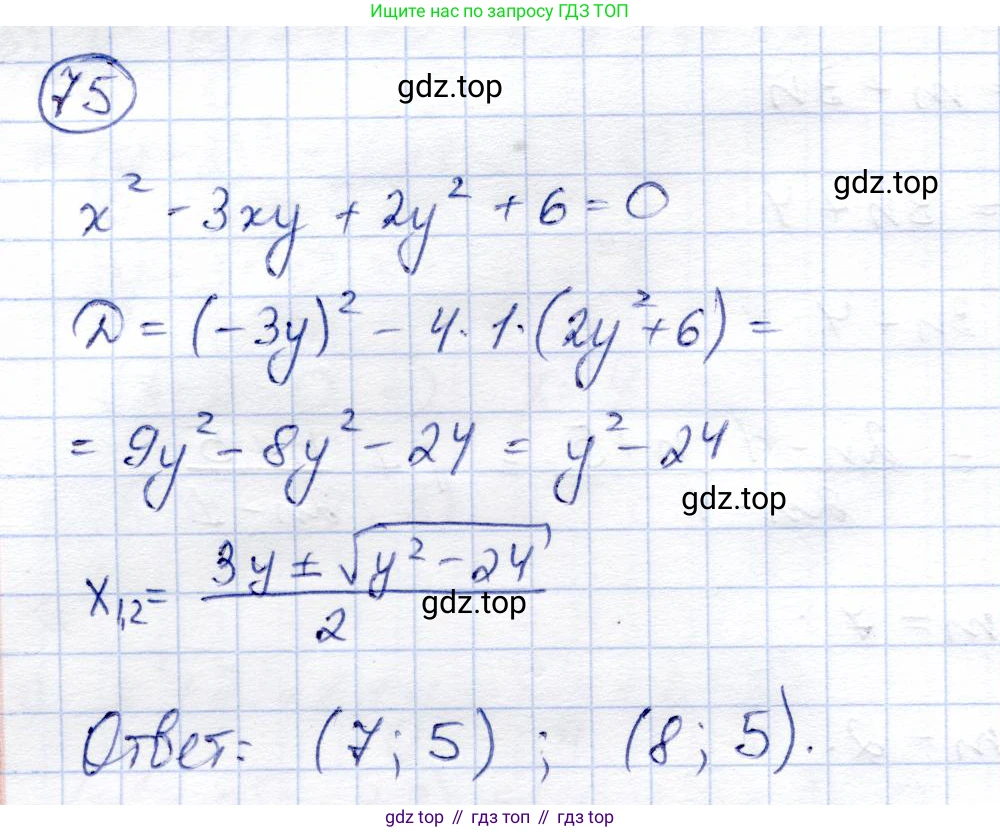 Ищите нас по запросу ГДЗ ТОП
75
gdz.top
x² - 3xy + 2y² + 6 = 0
gdz.top
D = (-3y)² - 4·1·(2y²+6) =
= 9y² - 8y² - 24 = y² - 24
gdz.top
x₁,₂ = (3y ± √(y² - 24)) / 2
gdz.top
Ответ: (7; 5) ; (8; 5).
gdz.top // гдз топ // гдз.top